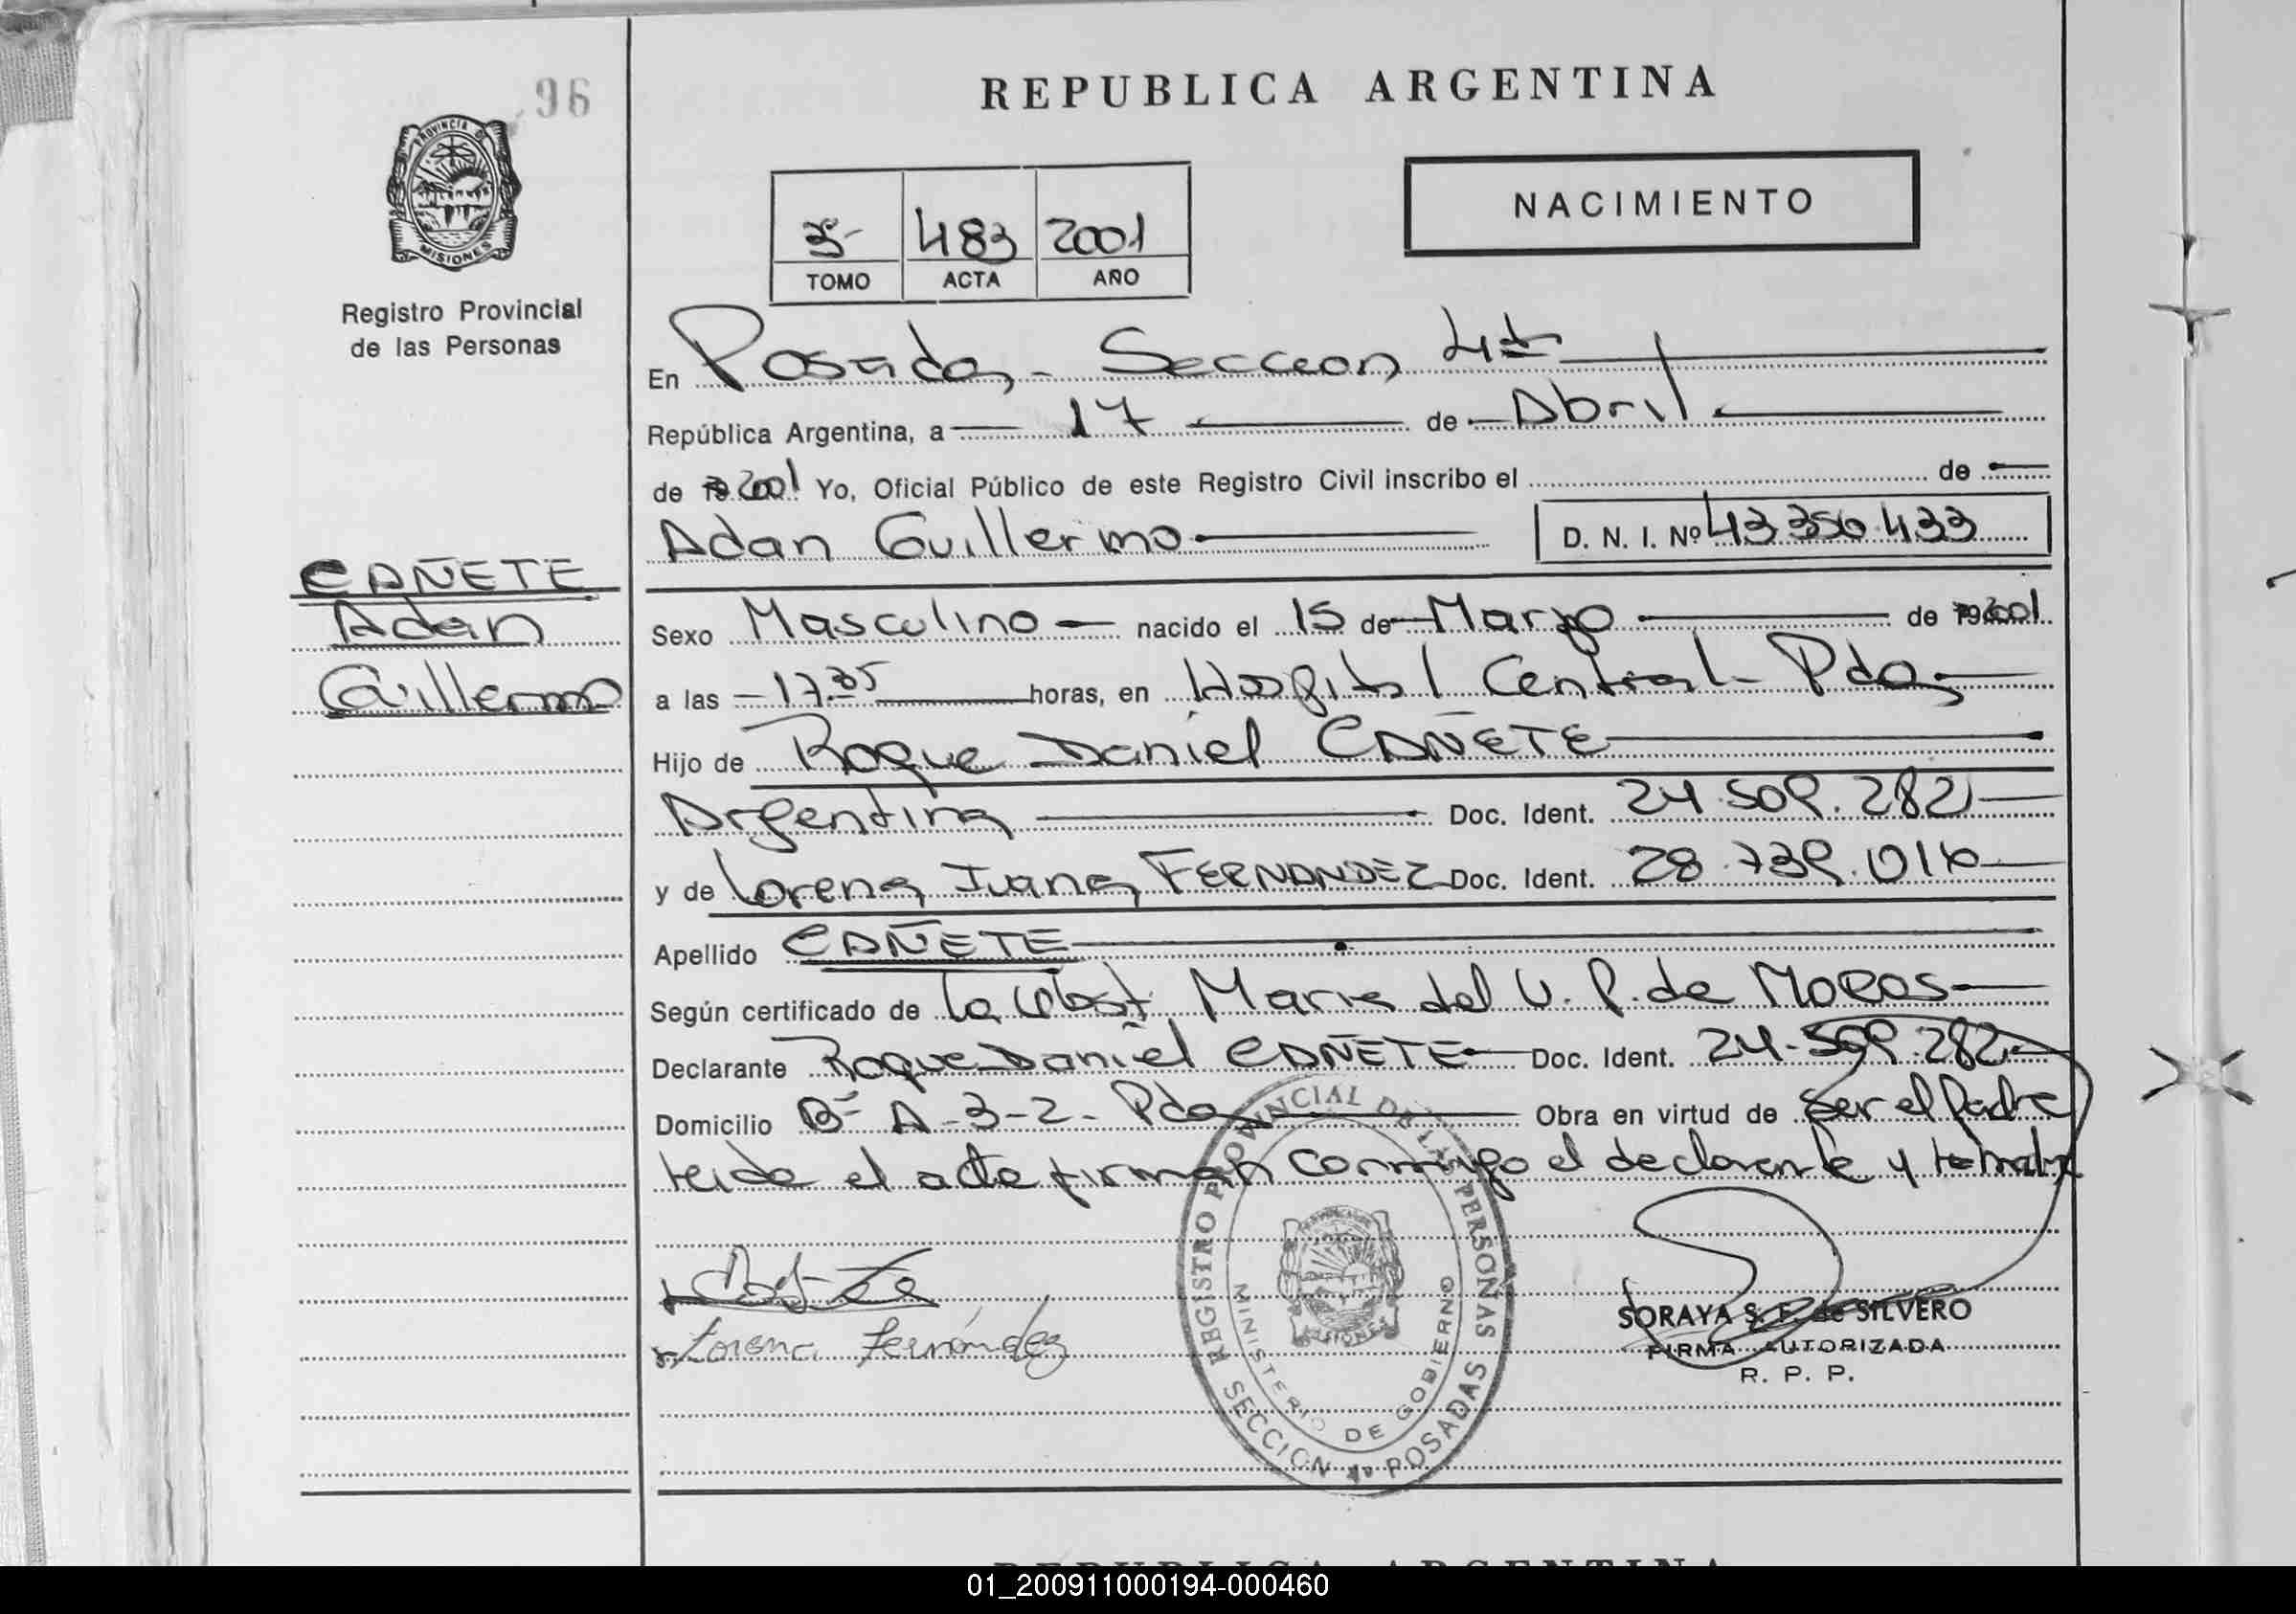 96
REPUBLICA ARGENTINA
PROVINCIA DE
MISIONES
Registro Provincial
de las Personas
NACIMIENTO
3º- 483 2001
TOMO ACTA AÑO
En Posadas - Seccion 4ta
República Argentina, a 17 de Abril
de 2001 Yo, Oficial Público de este Registro Civil inscribo el de
Adan Guillermo D. N. I. Nº 43.356.433
CAÑETE
Adan
Guillermo
Sexo Masculino nacido el 15 de Marzo de 2001
a las 17.35 horas, en Hospital Central - Pdas
Hijo de Roque Daniel CAÑETE
Argentina Doc. Ident. 24.509.282
y de Lorena Ivana FERNANDEZ Doc. Ident. 28.739.01
Apellido CAÑETE
Según certificado de la Obst. Maria del V. P. de MORAS
Declarante Roque Daniel CAÑETE Doc. Ident. 24.509.282
Domicilio Bº A-3-2- Pdas Obra en virtud de Ser el Padre
Leida el acta firman conmigo el declarante y la madre
Lorena Fernández
REGISTRO PROVINCIAL DE LAS PERSONAS
MINISTERIO DE GOBIERNO
SECCION 4ta POSADAS
MISIONES
SORAYA S. F. de SILVERO
FIRMA AUTORIZADA
R. P. P.
REPUBLICA ARGENTINA
01_200911000194-000460